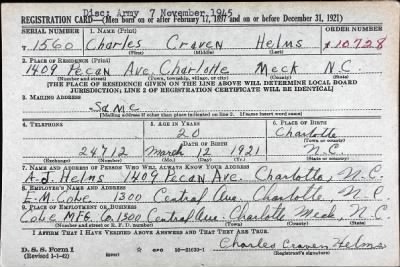 Disc: Army 7 November 1945
REGISTRATION CARD—(Men born on or after February 17, 1897 and on or before December 31, 1921)
SERIAL NUMBER 1. NAME (Print) ORDER NUMBER
T 1560 Charles Craven Helms 10728
(First) (Middle) (Last)
2. PLACE OF RESIDENCE (Print)
1409 Pecan Ave. Charlotte Meck N.C.
(Number and street) (Town, township, village, or city) (County) (State)
[THE PLACE OF RESIDENCE GIVEN ON THE LINE ABOVE WILL DETERMINE LOCAL BOARD
JURISDICTION; LINE 2 OF REGISTRATION CERTIFICATE WILL BE IDENTICAL]
3. MAILING ADDRESS
Same
[Mailing address if other than place indicated on line 2. If same insert word same]
4. TELEPHONE 5. AGE IN YEARS 6. PLACE OF BIRTH
20 Charlotte
DATE OF BIRTH (Town or county)
24712 March 12 1921 N.C.
(Exchange) (Number) (Mo.) (Day) (Yr.) (State or country)
7. NAME AND ADDRESS OF PERSON WHO WILL ALWAYS KNOW YOUR ADDRESS
A.J. Helms 1409 Pecan Ave. Charlotte, N.C.
8. EMPLOYER'S NAME AND ADDRESS
E.M. Cole 1300 Central Ave. Charlotte, N.C.
9. PLACE OF EMPLOYMENT OR BUSINESS
Cole MFG. Co. 1300 Central Ave. Charlotte Meck, N.C.
(Number and street or R. F. D. number) (Town) (County) (State)
I AFFIRM THAT I HAVE VERIFIED ABOVE ANSWERS AND THAT THEY ARE TRUE.
D. S. S. Form 1 GPO 16—21630-1 Charles Craven Helms
(Revised 1-1-42) (Registrant's signature)